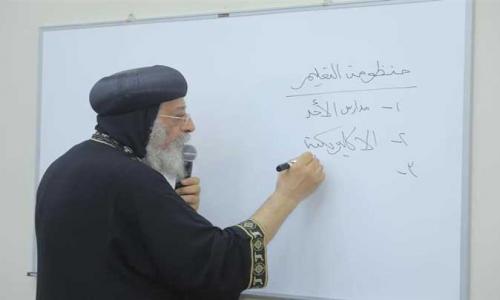 منظومة التعليم
١- مدارس الأحد
٢- الاكليريكية
٣-